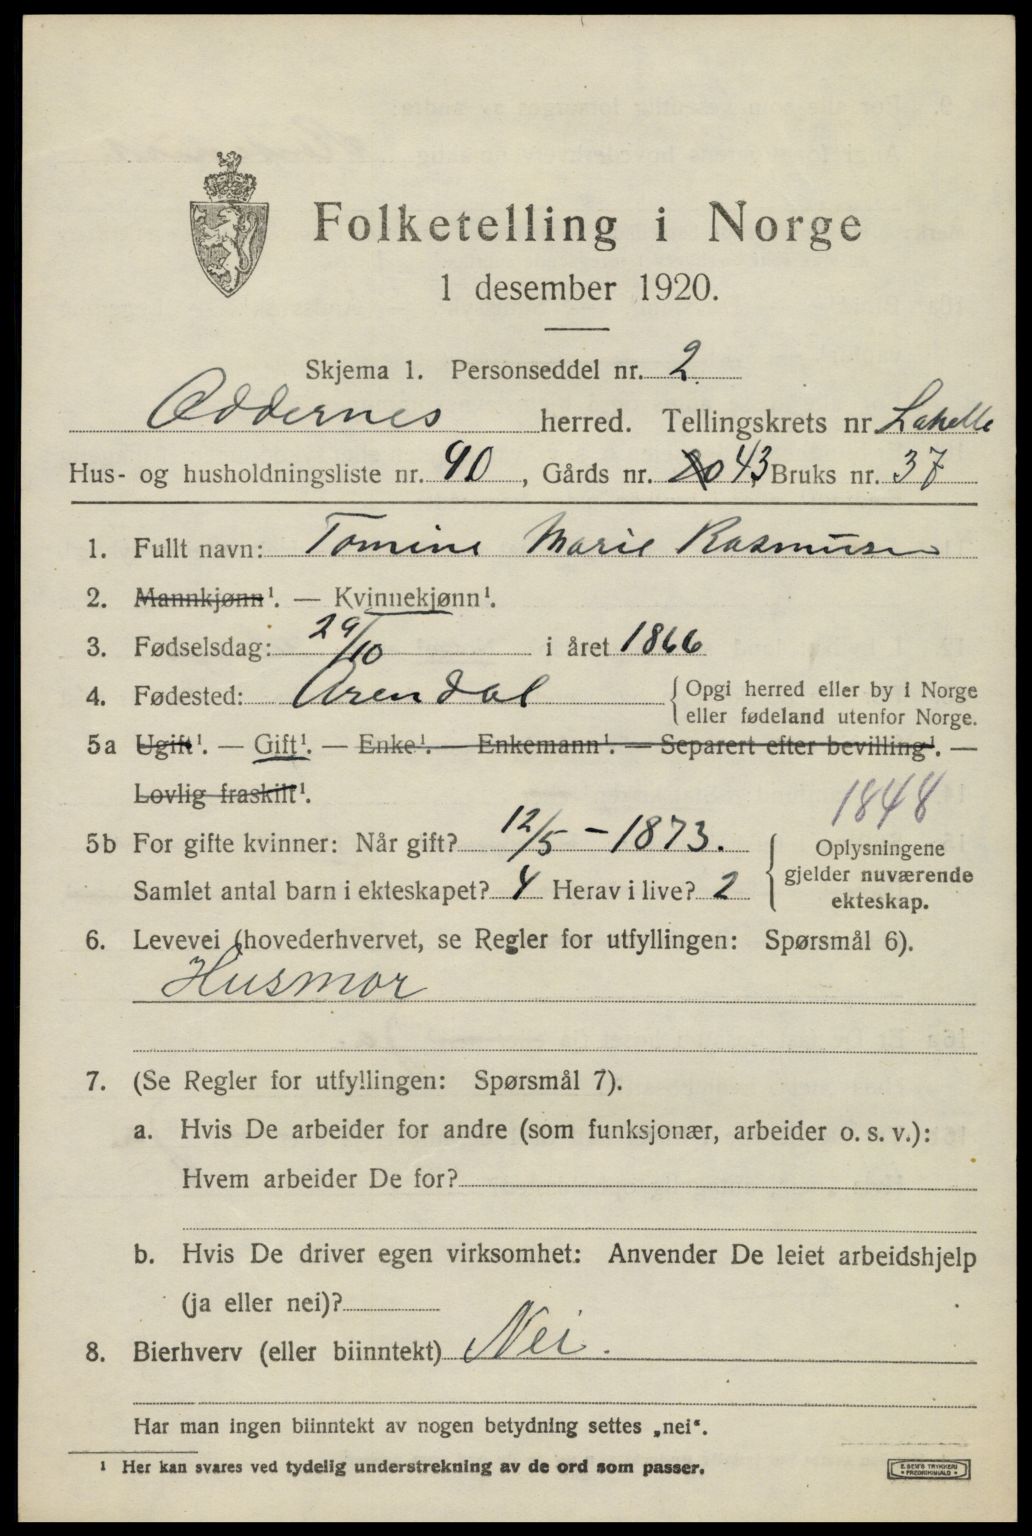 Folketelling i Norge
1 desember 1920.
Skjema 1. Personseddel nr. 2
Oddernes herred. Tellingskrets nr Lahelle
Hus- og husholdningsliste nr. 90, Gårds nr. 20 43, Bruks nr. 37
1. Fullt navn: Tomine Marie Rasmusen
2. Mannkjønn¹. — Kvinnekjønn¹.
3. Fødselsdag: 29/10 i året 1866
4. Fødested: Arendal { Opgi herred eller by i Norge
eller fødeland utenfor Norge.
5a Ugift¹. — Gift¹. — Enke¹. — Enkemann¹. — Separert efter bevilling¹. —
Lovlig fraskilt¹.
1848
5b For gifte kvinner: Når gift? 12/5 – 1873.
Samlet antal barn i ekteskapet? 4 Herav i live? 2
Oplysningene
gjelder nuværende
ekteskap.
6. Levevei (hovederhvervet, se Regler for utfyllingen: Spørsmål 6).
Husmor
7. (Se Regler for utfyllingen: Spørsmål 7).
a. Hvis De arbeider for andre (som funksjonær, arbeider o. s. v.):
Hvem arbeider De for?
b. Hvis De driver egen virksomhet: Anvender De leiet arbeidshjelp
(ja eller nei)?
8. Bierhverv (eller biinntekt) Nei.
Har man ingen biinntekt av nogen betydning settes „nei“.
¹ Her kan svares ved tydelig understrekning av de ord som passer.
E. SEM'S TRYKKERI
• FREDRIKSHALD •